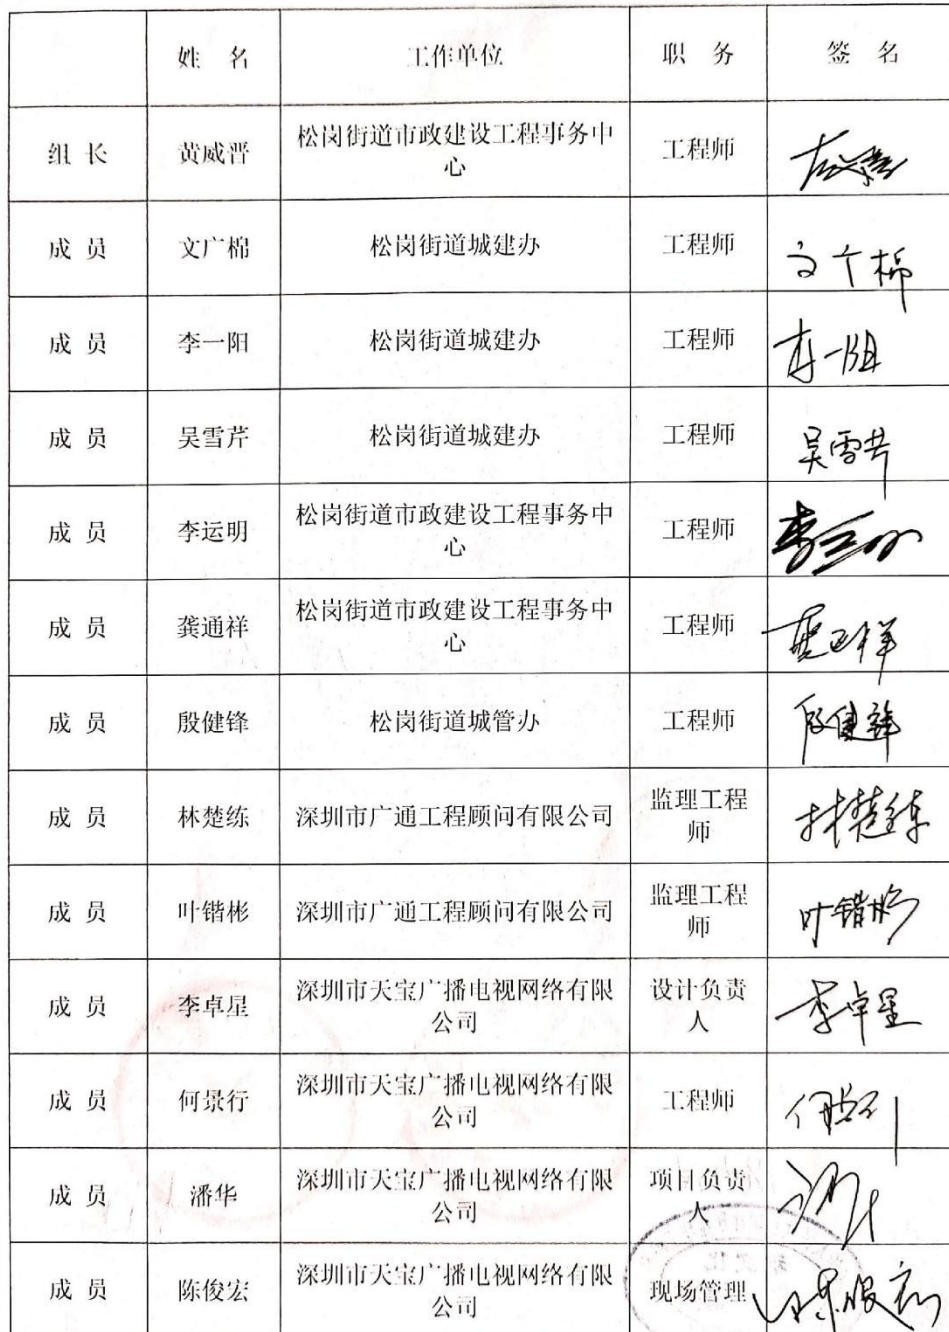 姓 名 工作单位 职 务 签 名
组 长 黄威晋 松岗街道市政建设工程事务中 工程师
心
成 员 文广棉 松岗街道城建办 工程师 文广棉
成 员 李一阳 松岗街道城建办 工程师 李一阳
成 员 吴雪芹 松岗街道城建办 工程师 吴雪芹
成 员 李运明 松岗街道市政建设工程事务中 工程师 李运明
心
成 员 龚通祥 松岗街道市政建设工程事务中 工程师 龚通祥
心
成 员 殷健锋 松岗街道城管办 工程师 殷健锋
成 员 林楚练 深圳市广通工程顾问有限公司 监理工程 林楚练
师
成 员 叶锴彬 深圳市广通工程顾问有限公司 监理工程 叶锴彬
师
成 员 李卓星 深圳市天宝广播电视网络有限 设计负责 李卓星
公司 人
成 员 何景行 深圳市天宝广播电视网络有限 工程师 何景行
公司
成 员 潘华 深圳市天宝广播电视网络有限 项目负责
公司 人
成 员 陈俊宏 深圳市天宝广播电视网络有限 现场管理 陈俊宏
公司